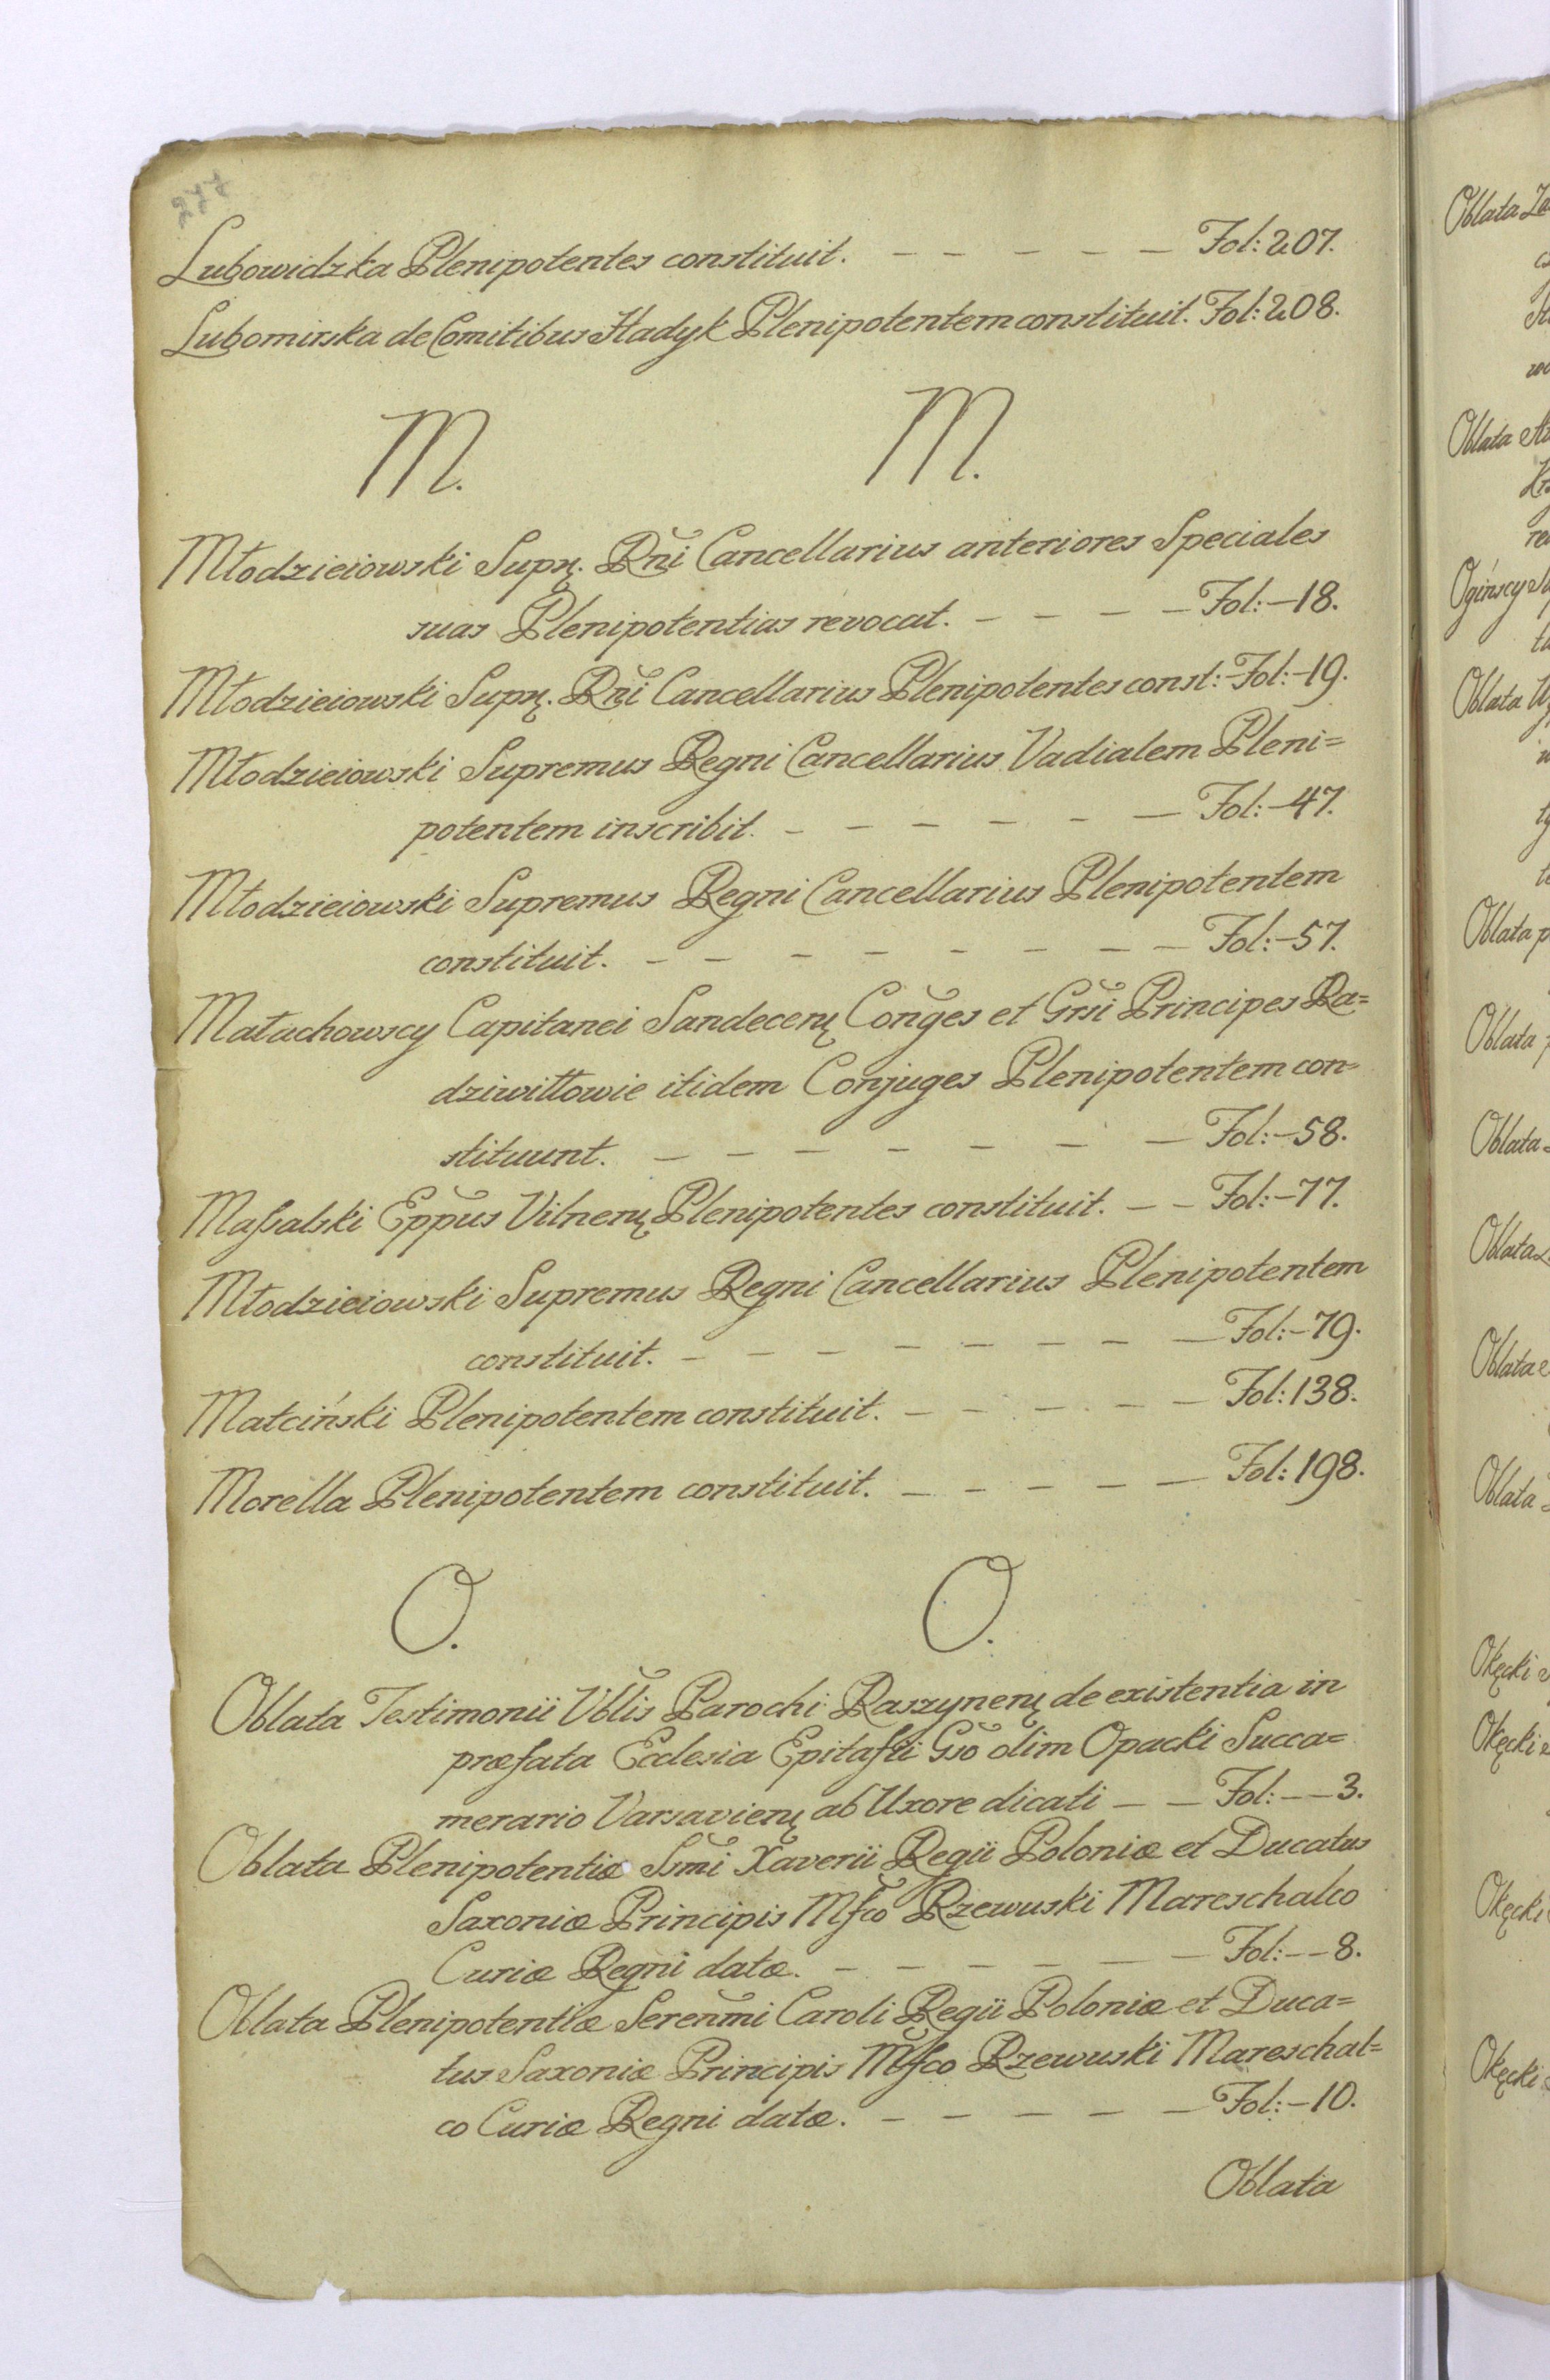 277
Lubowidzka Plenipotentes constituit. – – – – – Fol: 207.
Lubomirska de Comitibus Hadyk Plenipotentem constituit. Fol: 208.
M. M.
Młodzieiowski Supr. Rni Cancellarius anteriores Speciales
suas Plenipotentias revocat. – – – – Fol: – 18.
Młodzieiowski Supr. Rni Cancellarius Plenipotentes const: Fol: – 19.
Młodzieiowski Supremus Regni Cancellarius Vadialem Pleni=
potentem inscribit. – – – – – – Fol: – 47.
Młodzieiowski Supremus Regni Cancellarius Plenipotentem
constituit. – – – – – – – – Fol: – 57.
Małachowscy Capitanei Sandecen Conges et Grsi Principes Ra=
dziwiłłowie itidem Conjuges Plenipotentem con=
stituunt. – – – – – – – – Fol: – 58.
Maſsalski Eppus Vilnen Plenipotentes constituit. – – Fol: – 77.
Młodzieiowski Supremus Regni Cancellarius Plenipotentem
constituit. – – – – – – – – Fol: – 79.
Małciński Plenipotentem constituit. – – – – – Fol: 138.
Morella Plenipotentem constituit. – – – – – Fol: 198.
O. O.
Oblata Testimonii Vblis Parochi Raszynen de existentia in
præfata Ecclesia Epitafii Gso olim Opacki Succa=
merario Varsavien ab Uxore dicati – – Fol: – – 3.
Oblata Plenipotentiæ Smi Xaverii Regii Poloniæ et Ducatus
Saxoniæ Principis Mfco Rzewuski Mareschalco
Curiæ Regni datæ. – – – – – – Fol: – – 8.
Oblata Plenipotentiæ Serenmi Caroli Regii Poloniæ et Duca=
tus Saxoniæ Principis Mfco Rzewuski Mareschal=
co Curiæ Regni datæ. – – – – – Fol: – 10.
Oblata
Oblata
Oblata
Ogińscy
Oblata
Oblata
Oblata
Oblata
Oblata
Oblata
Oblata
Okęcki
Okęcki
Okęcki
Okęcki